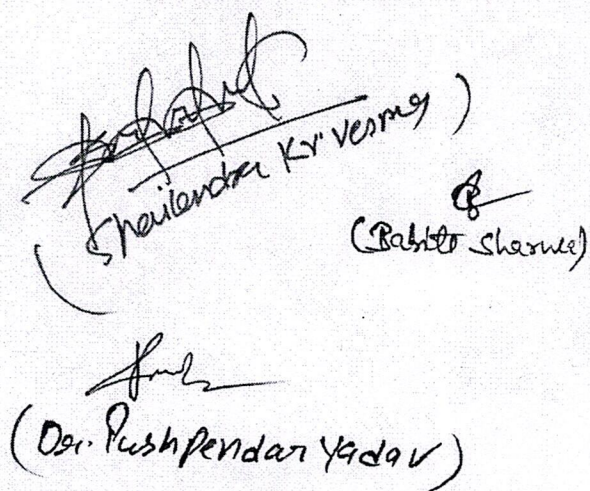 (Shailendra Kr Verma)
(Babita Sharma)
(Dr. Pushpendar Yadav)